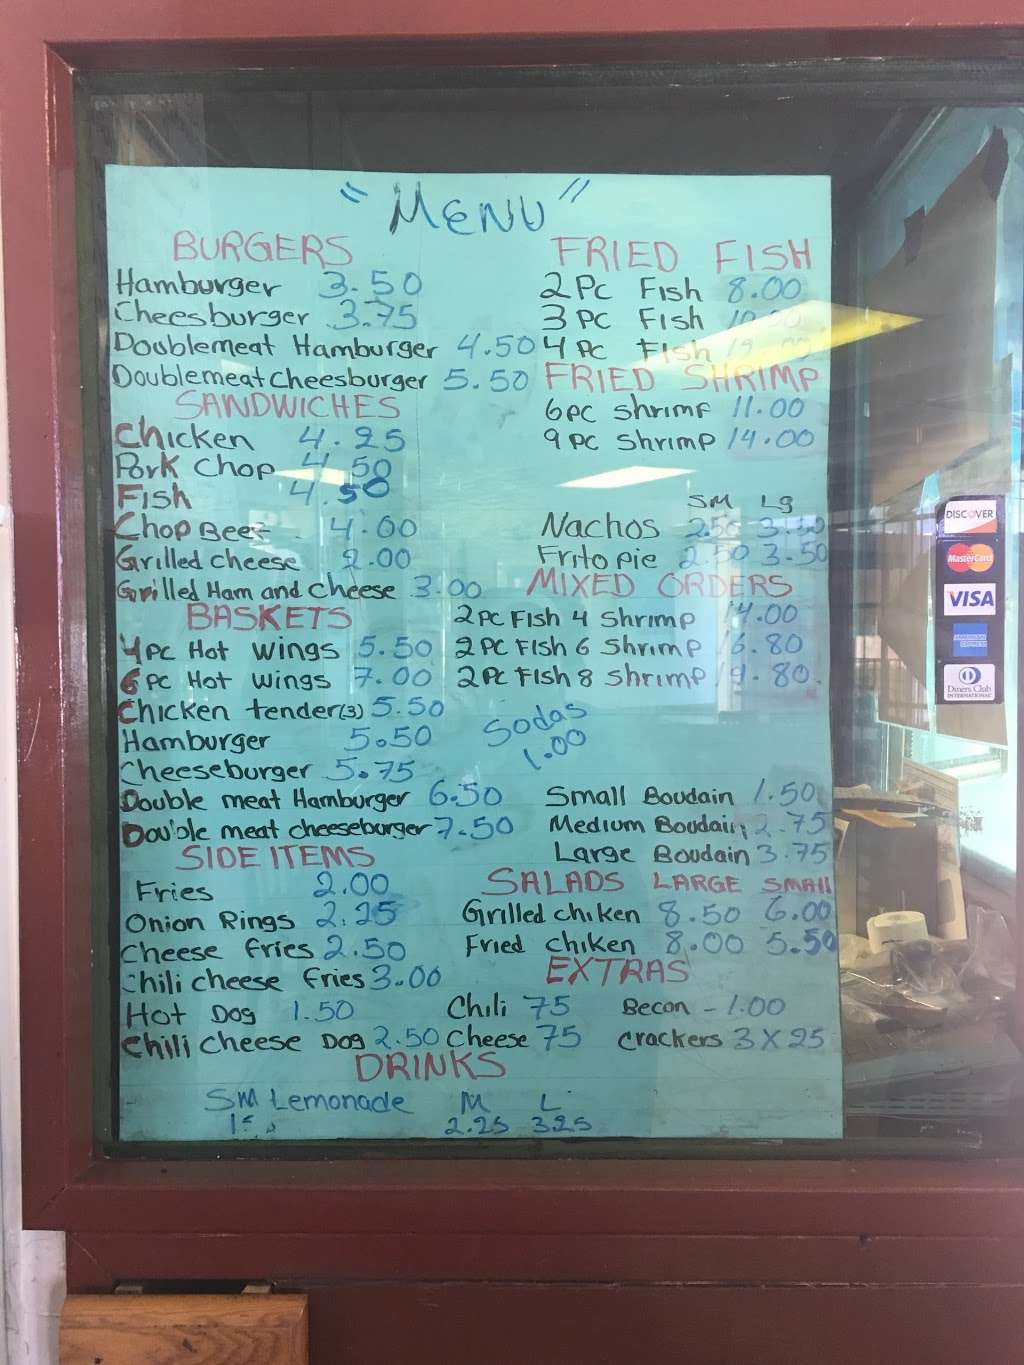 "MENU"
BURGERS
Hamburger 3.50
Cheesburger 3.75
Doublemeat Hamburger 4.50
Doublemeat cheesburger 5.50
SANDWICHES
Chicken 4.25
Pork Chop 4.50
Fish 4.50
Chop Beef 4.00
Grilled cheese 2.00
Grilled Ham and cheese 3.00
BASKETS
4 pc Hot wings 5.50
6 pc Hot wings 7.00
Chicken tender(3) 5.50
Hamburger 5.50
Cheeseburger 5.75
Double meat Hamburger 6.50
Double meat cheeseburger 7.50
SIDE ITEMS
Fries 2.00
Onion Rings 2.25
Cheese fries 2.50
Chili cheese fries 3.00
Hot Dog 1.50
Chili cheese Dog 2.50
FRIED FISH
2 Pc Fish 8.00
3 Pc Fish
4 Pc Fish
FRIED SHRIMP
6 pc shrimp 11.00
9 pc shrimp 14.00
SM Lg
Nachos 3.50
Frito pie 2.50 3.50
MIXED ORDERS
2 pc Fish 4 shrimp 14.00
2 pc Fish 6 shrimp 16.80
2 pc Fish 8 shrimp 19.80
Sodas
1.00
Small Boudain 1.50
Medium Boudain 2.75
Large Boudain 3.75
SALADS LARGE SMALL
Grilled chiken 8.50 6.00
Fried chiken 8.00 5.50
EXTRAS
Chili 75 Becon - 1.00
Cheese 75 crackers 3 X 25
DRINKS
SM Lemonade M L
2.25 3.25
DISCOVER
MasterCard
VISA
AMERICAN EXPRESS
Diners Club
INTERNATIONAL